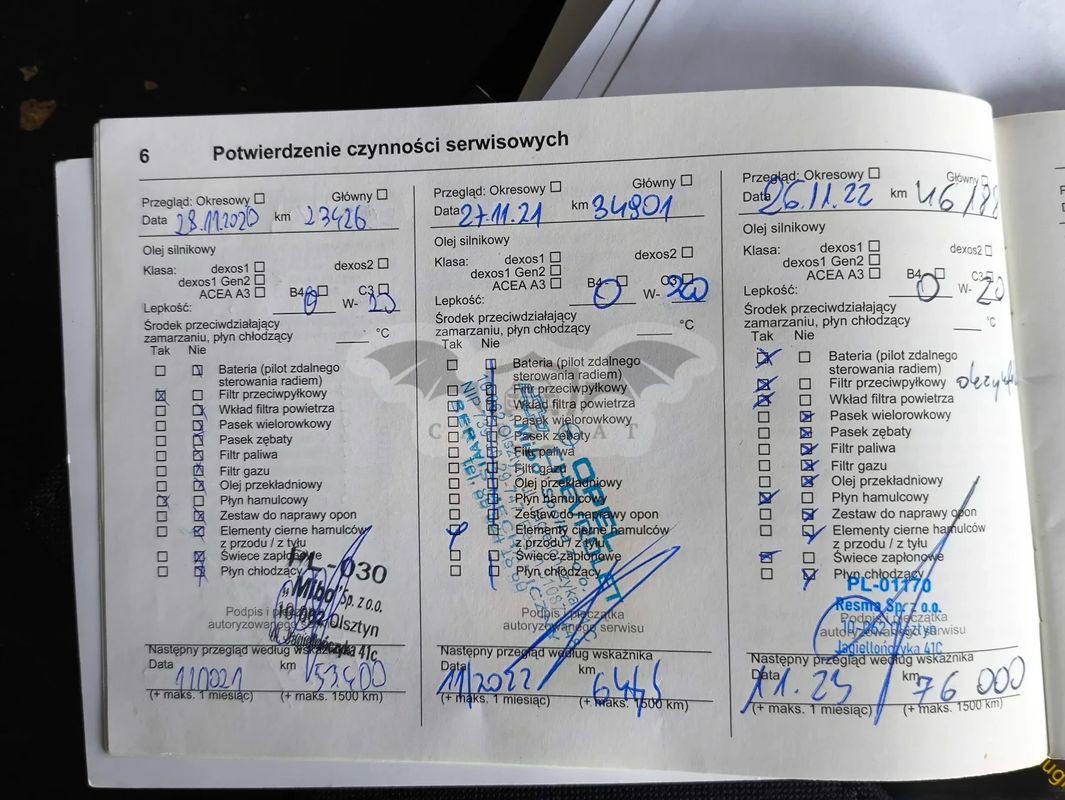 6 Potwierdzenie czynności serwisowych
Przegląd: Okresowy ☐ Główny ☐
Data 28.11.2020 km 23426
Olej silnikowy
Klasa: dexos1 ☐ dexos2 ☐
dexos1 Gen2 ☐
ACEA A3 ☐ B4 ☐ C3 ☐
Lepkość: 0 W- 20
Środek przeciwdziałający
zamarzaniu, płyn chłodzący °C
Tak Nie
Bateria (pilot zdalnego
sterowania radiem)
Filtr przeciwpyłkowy
Wkład filtra powietrza
Pasek wielorowkowy
Pasek zębaty
Filtr paliwa
Filtr gazu
Olej przekładniowy
Płyn hamulcowy
Zestaw do naprawy opon
Elementy cierne hamulców
z przodu / z tyłu
Świece zapłonowe
Płyn chłodzący
PL-030
"Mibo" Sp. z o.o.
10-062 Olsztyn
ul. Jagiellończyka 41c
Podpis i pieczątka
autoryzowanego serwisu
Następny przegląd według wskaźnika
Data 11/2021 km 53400
(+ maks. 1 miesiąc) (+ maks. 1500 km)
Przegląd: Okresowy ☐ Główny ☐
Data 27.11.21 km 34801
Olej silnikowy
Klasa: dexos1 ☐ dexos2 ☐
dexos1 Gen2 ☐
ACEA A3 ☐ B4 ☐ C3 ☐
Lepkość: 0 W- 20
Środek przeciwdziałający
zamarzaniu, płyn chłodzący °C
Tak Nie
Bateria (pilot zdalnego
sterowania radiem)
Filtr przeciwpyłkowy
Wkład filtra powietrza
Pasek wielorowkowy
Pasek zębaty
Filtr paliwa
Filtr gazu
Olej przekładniowy
Płyn hamulcowy
Zestaw do naprawy opon
Elementy cierne hamulców
z przodu / z tyłu
Świece zapłonowe
Płyn chłodzący
OPEL
CHEVROLET
SERWIS
Podpis i pieczątka
autoryzowanego serwisu
Następny przegląd według wskaźnika
Data 11/2022 km
(+ maks. 1 miesiąc) (+ maks. 1500 km)
Przegląd: Okresowy ☐ Główny ☐
Data 26.11.22 km
Olej silnikowy
Klasa: dexos1 ☐ dexos2 ☐
dexos1 Gen2 ☐
ACEA A3 ☐ B4 ☐ C3 ☐
Lepkość: 0 W- 20
Środek przeciwdziałający
zamarzaniu, płyn chłodzący °C
Tak Nie
Bateria (pilot zdalnego
sterowania radiem)
Filtr przeciwpyłkowy
Wkład filtra powietrza
Pasek wielorowkowy
Pasek zębaty
Filtr paliwa
Filtr gazu
Olej przekładniowy
Płyn hamulcowy
Zestaw do naprawy opon
Elementy cierne hamulców
z przodu / z tyłu
Świece zapłonowe
Płyn chłodzący
PL-01170
Resma Sp. z o.o.
10-062 Olsztyn
Jagiellończyka 41C
Podpis i pieczątka
autoryzowanego serwisu
Następny przegląd według wskaźnika
Data 11.23 km 76 000
(+ maks. 1 miesiąc) (+ maks. 1500 km)